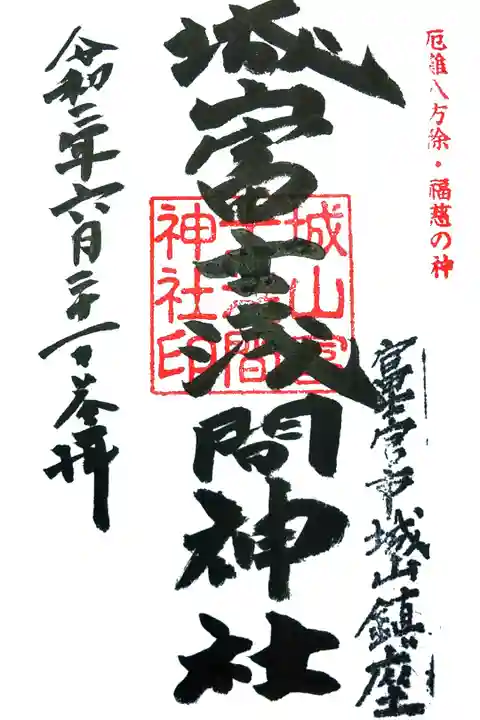 厄難八方除・福慈の神
富士宮市城山鎮座
城富士浅間神社
城山富
士浅間
神社印
令和二年六月二十一日参拝